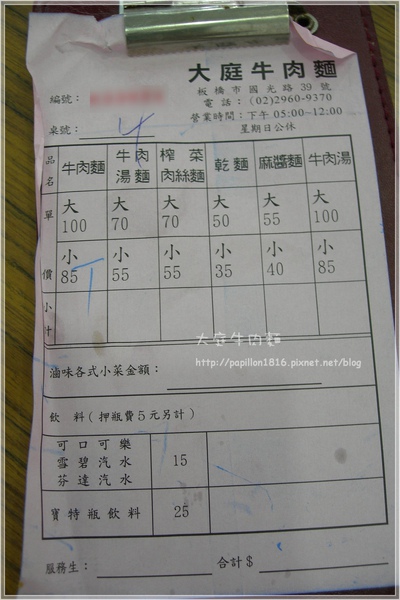 大庭牛肉麵
板橋市國光路39號
電話：(02)2960-9370
營業時間：下午05:00~12:00
星期日公休
編號：
桌號： 4
品名 牛肉麵 牛肉湯麵 榨菜肉絲麵 乾麵 麻醬麵 牛肉湯
單價 大100 大70 大70 大50 大55 大100
小85 小55 小55 小35 小40 小85
小計
大庭牛肉麵
http://papillon1816.pixnet.net/blog
滷味各式小菜金額：
飲 料(押瓶費5元另計)
可口可樂
雪碧汽水 15
芬達汽水
寶特瓶飲料 25
服務生： 合計$